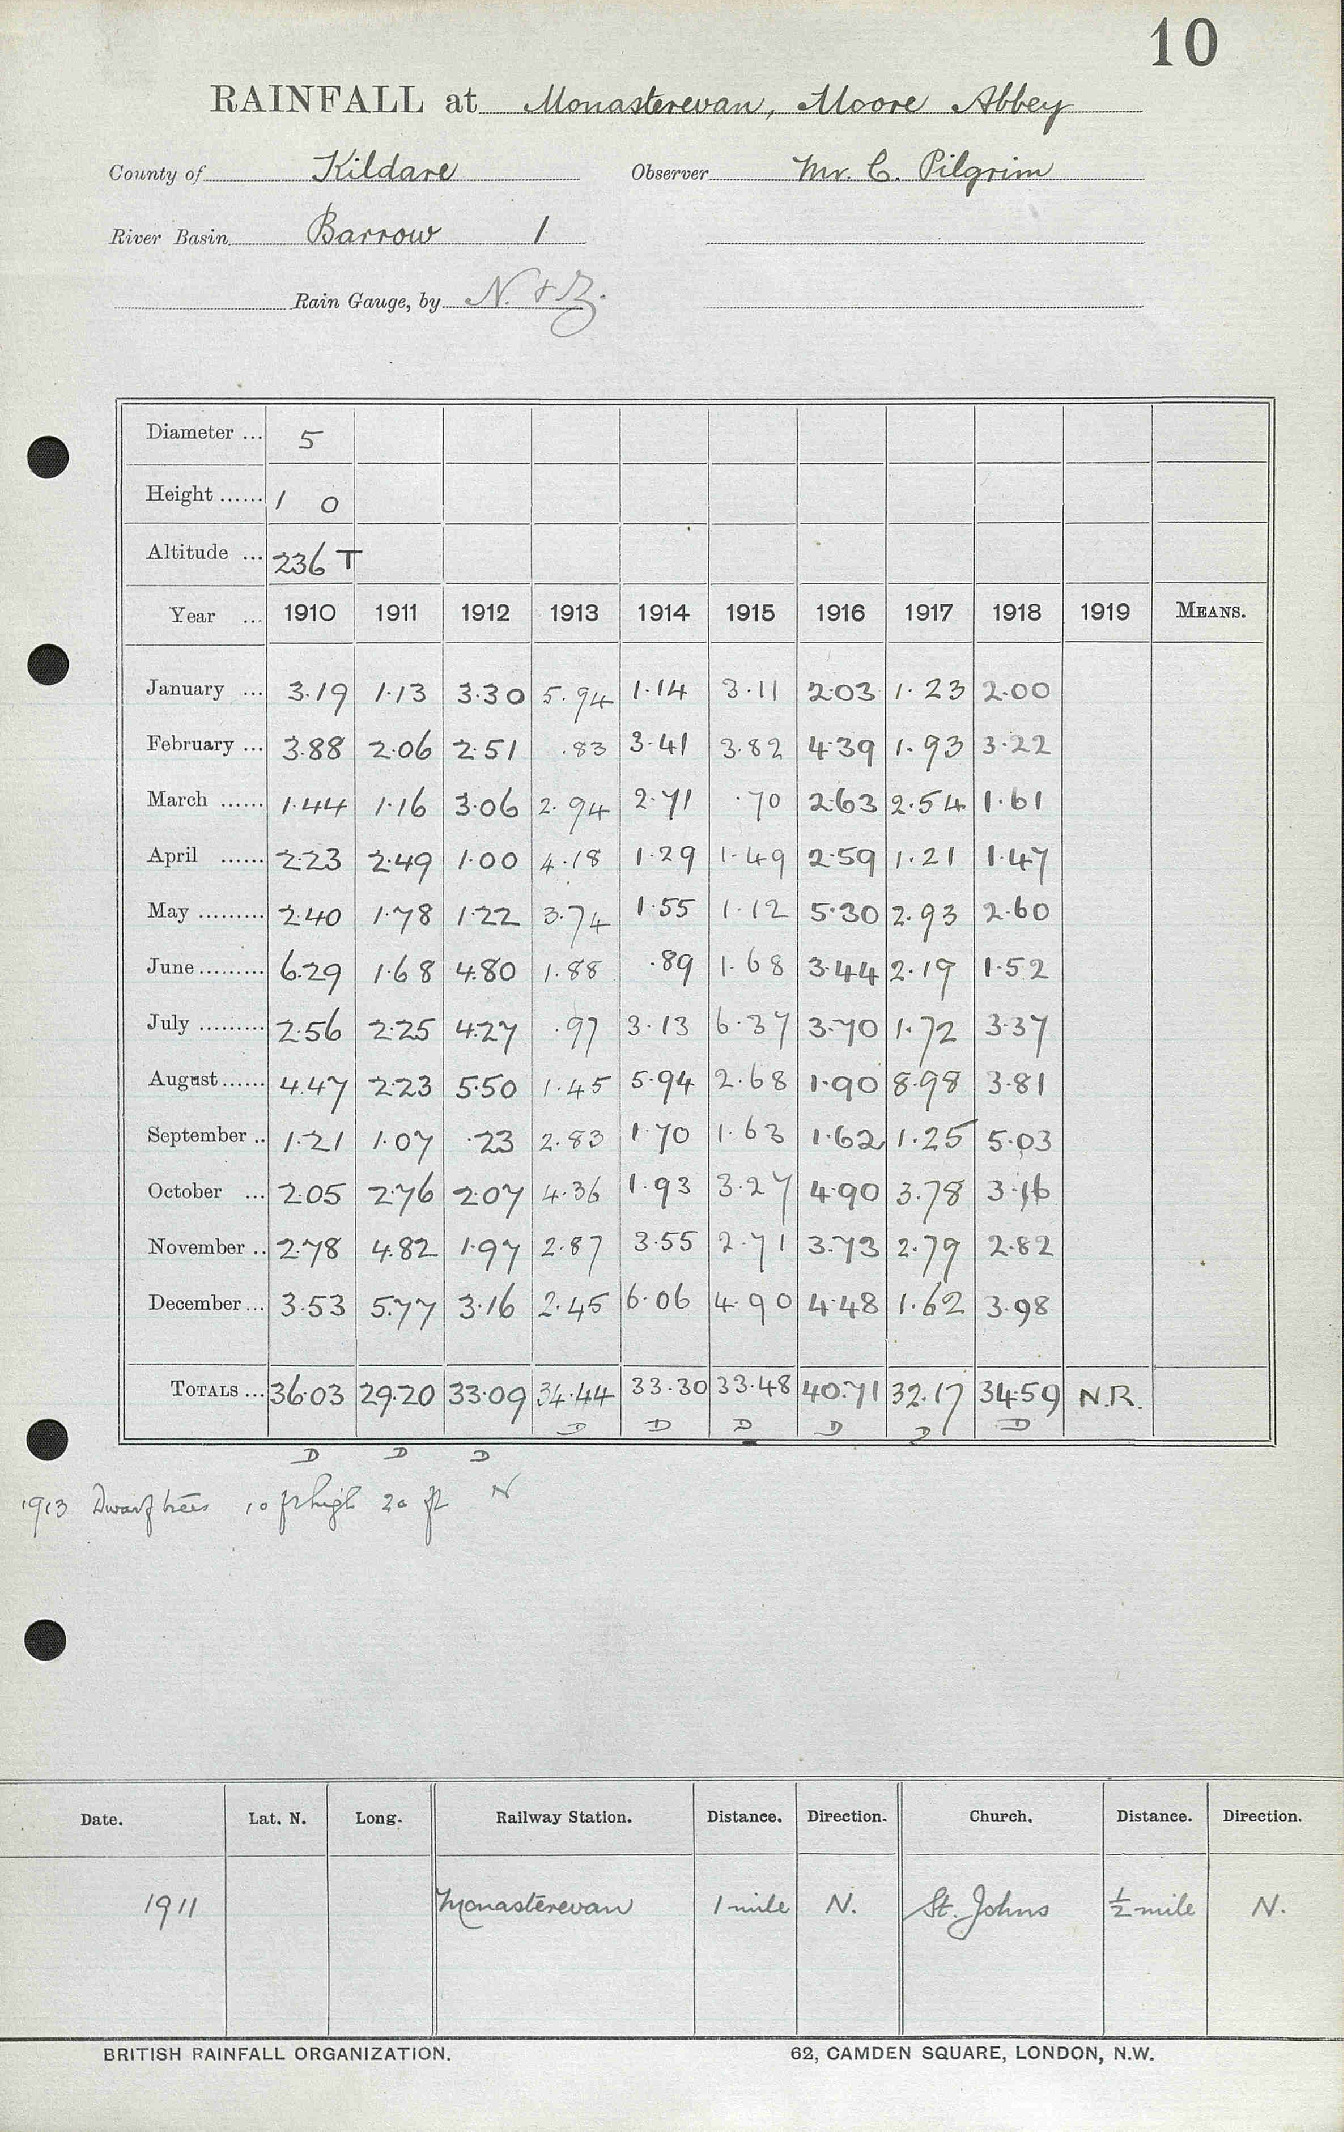 10
RAINFALL at Monasterevan, Moore Abbey
County of Kildare Observer Mr. C. Pilgrim
River Basin Barrow 1
Rain Gauge, by N. & Z.
Diameter ... 5
Height ...... 1 0
Altitude ... 236 T
Year ... 1910 1911 1912 1913 1914 1915 1916 1917 1918 1919 MEANS.
January ... 3.19 1.13 3.30 5.94 1.14 3.11 2.03 1.23 2.00
February ... 3.88 2.06 2.51 .83 3.41 3.82 4.39 1.93 3.22
March ...... 1.44 1.16 3.06 2.94 2.71 .70 2.63 2.54 1.61
April ...... 2.23 2.49 1.00 4.18 1.29 1.49 2.59 1.21 1.47
May ......... 2.40 1.78 1.22 3.74 1.55 1.12 5.30 2.93 2.60
June ......... 6.29 1.68 4.80 1.88 .89 1.68 3.44 2.19 1.52
July ......... 2.56 2.25 4.27 .97 3.13 6.37 3.70 1.72 3.37
August ...... 4.47 2.23 5.50 1.45 5.94 2.68 1.90 8.98 3.81
September .. 1.21 1.07 .23 2.83 1.70 1.63 1.62 1.25 5.03
October ... 2.05 2.76 2.07 4.36 1.93 3.27 4.90 3.78 3.16
November .. 2.78 4.82 1.97 2.87 3.55 2.71 3.73 2.79 2.82
December ... 3.53 5.77 3.16 2.45 6.06 4.90 4.48 1.62 3.98
TOTALS ... 36.03 29.20 33.09 34.44 33.30 33.48 40.71 32.17 34.59 N.R.
D D D D D D
D D D
1913 Dwarf trees 10 ft high 20 ft N
Date. Lat. N. Long. Railway Station. Distance. Direction. Church. Distance. Direction.
1911 Monasterevan 1 mile N. St. Johns ½ mile N.
BRITISH RAINFALL ORGANIZATION. 62, CAMDEN SQUARE, LONDON, N.W.